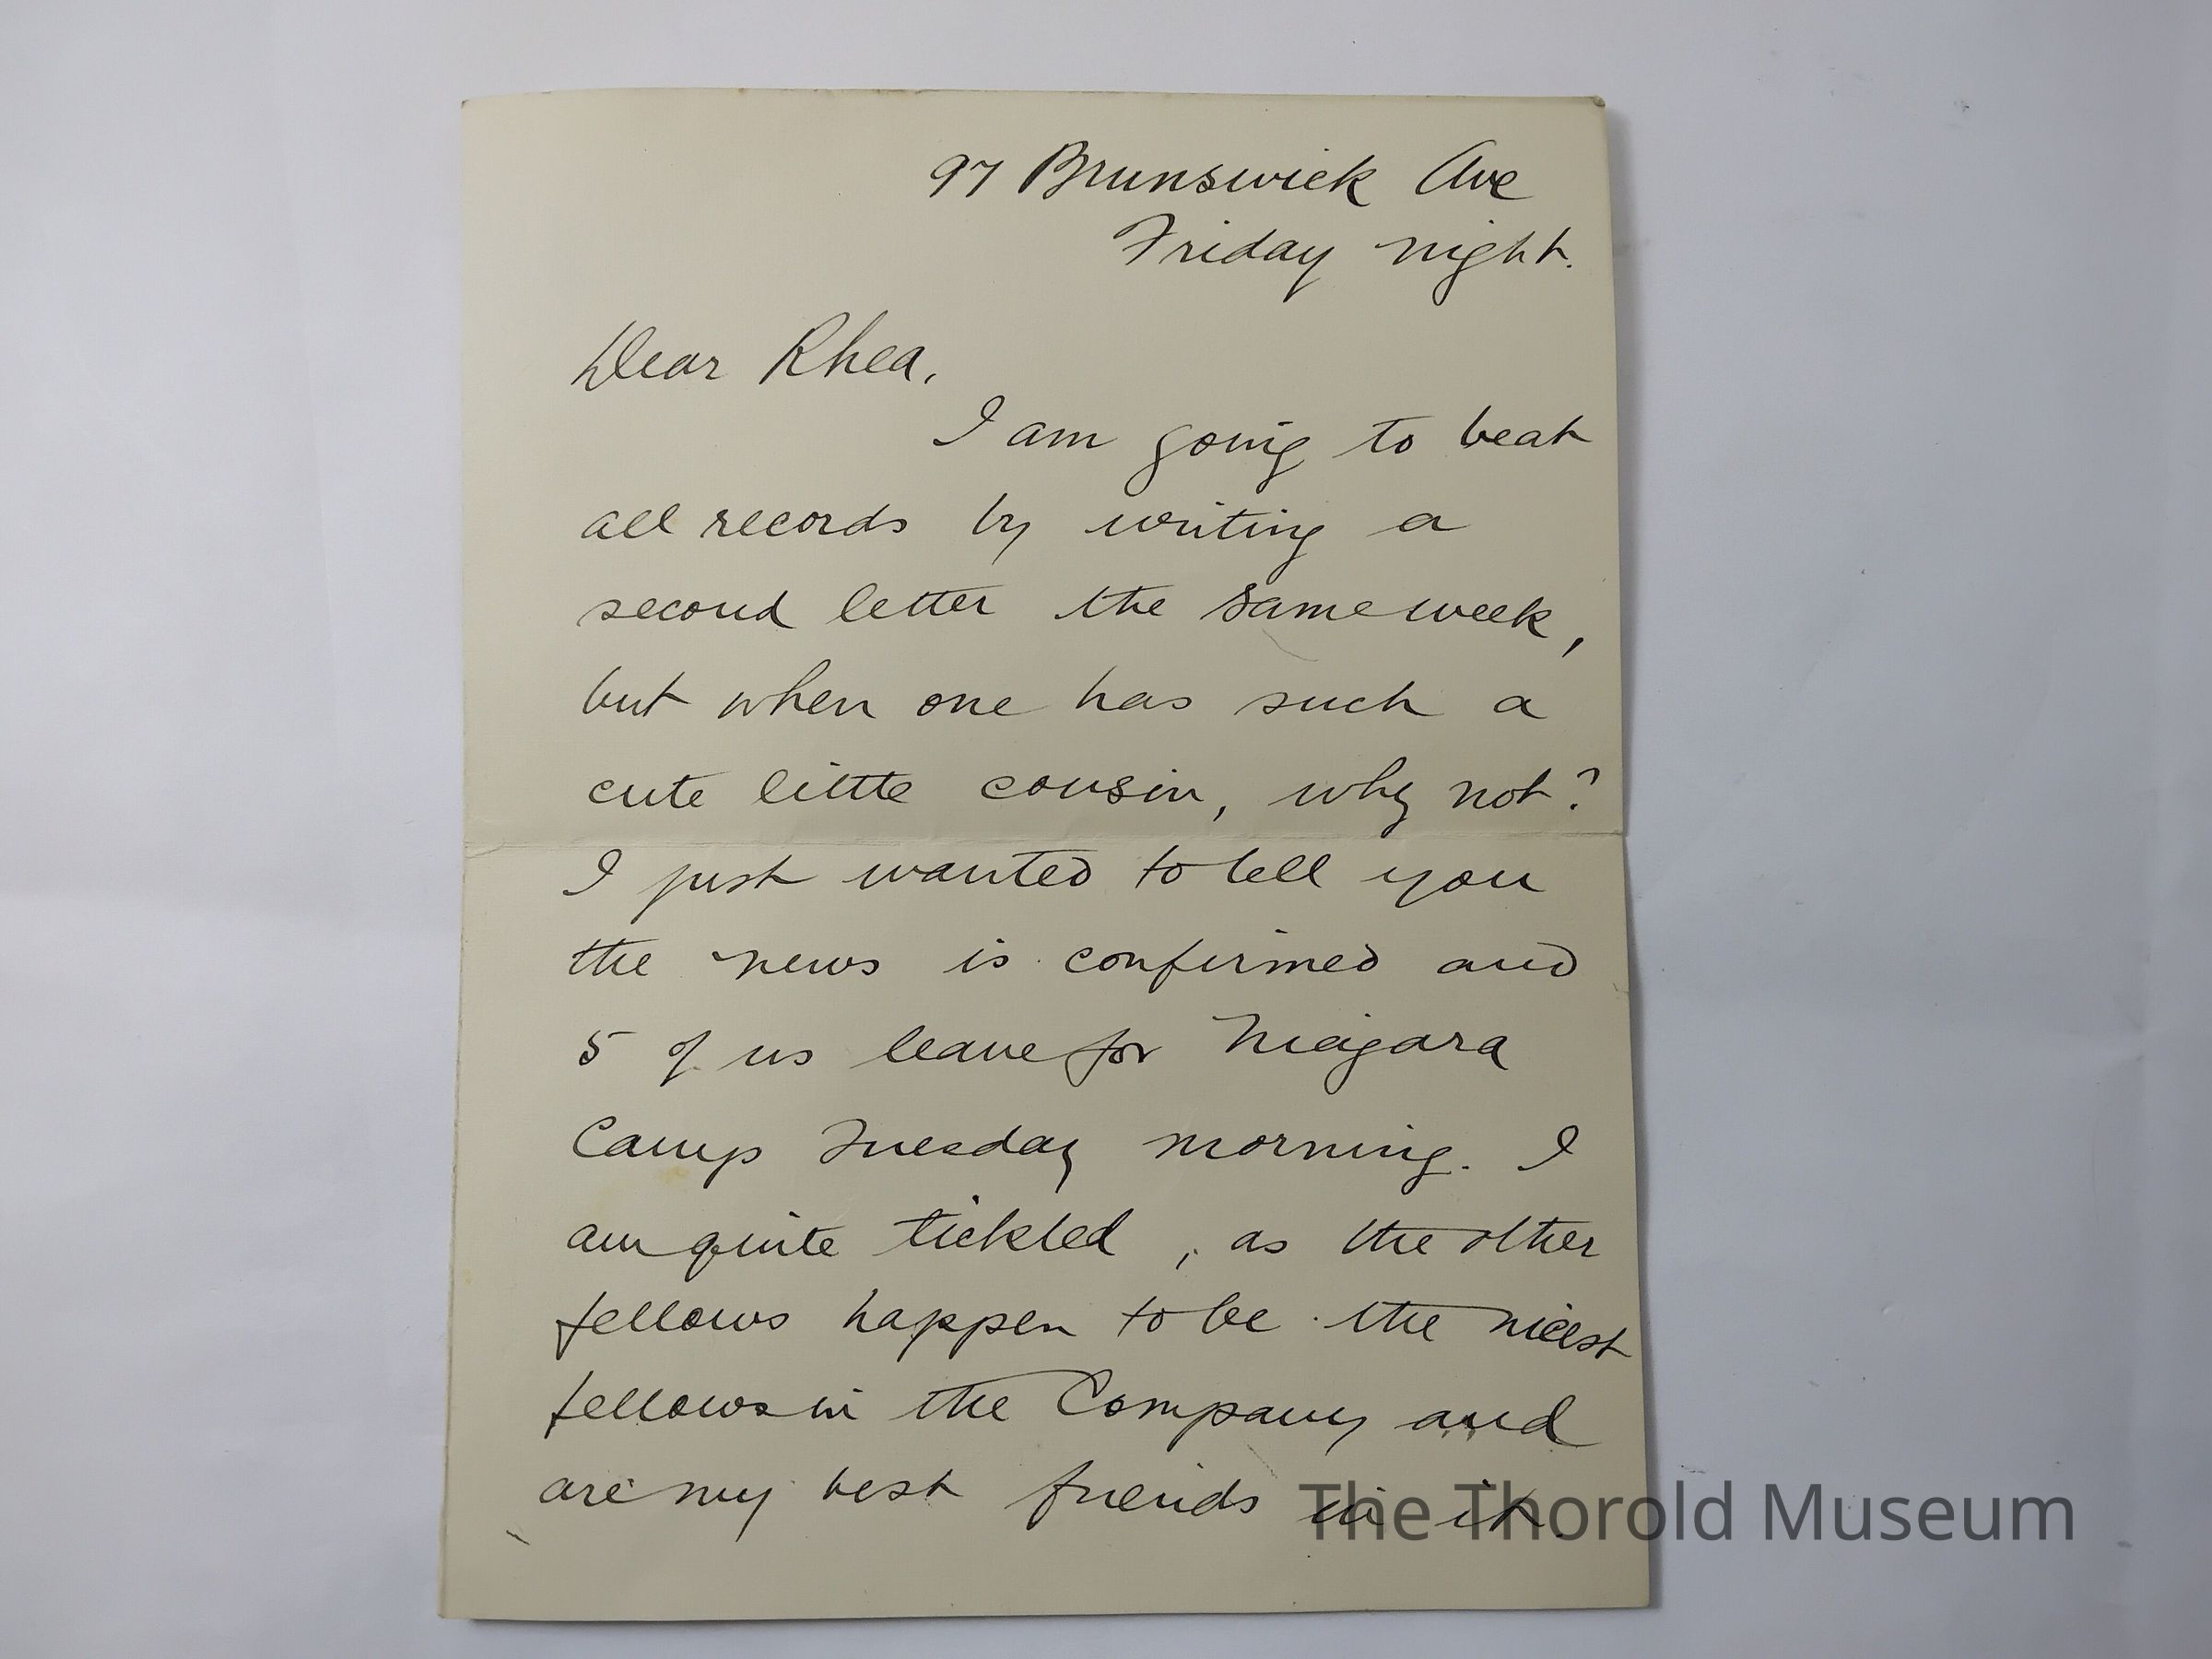 97 Brunswick Ave
Friday night.
Dear Rhea,
I am going to beat
all records by writing a
second letter the same week,
but when one has such a
cute little cousin, why not?
I just wanted to tell you
the news is confirmed and
5 of us leave for Niagara
Camp Tuesday morning. I
am quite tickled, as the other
fellows happen to be the nicest
fellows in the Company and
are my best friends in it.
The Thorold Museum